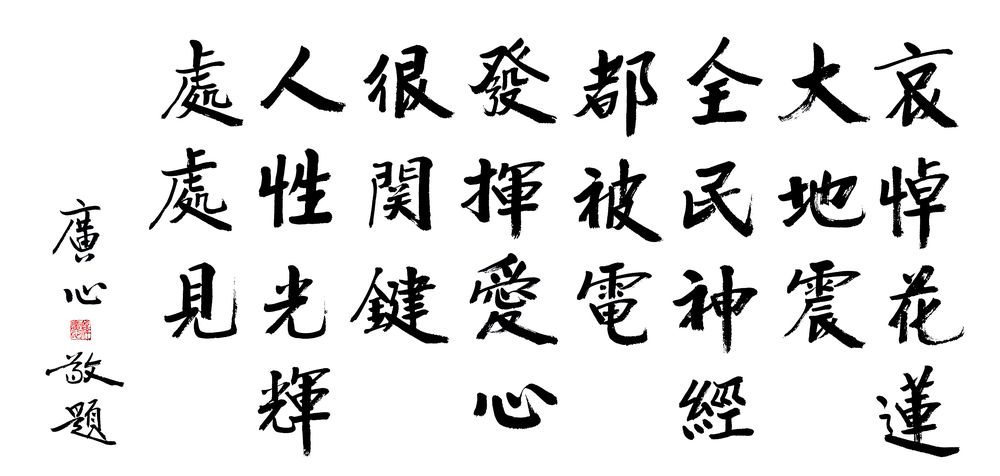 哀悼花蓮
大地震
全民神經
都被電
發揮愛心
很関鍵
人性光輝
處處見
廣心敬題